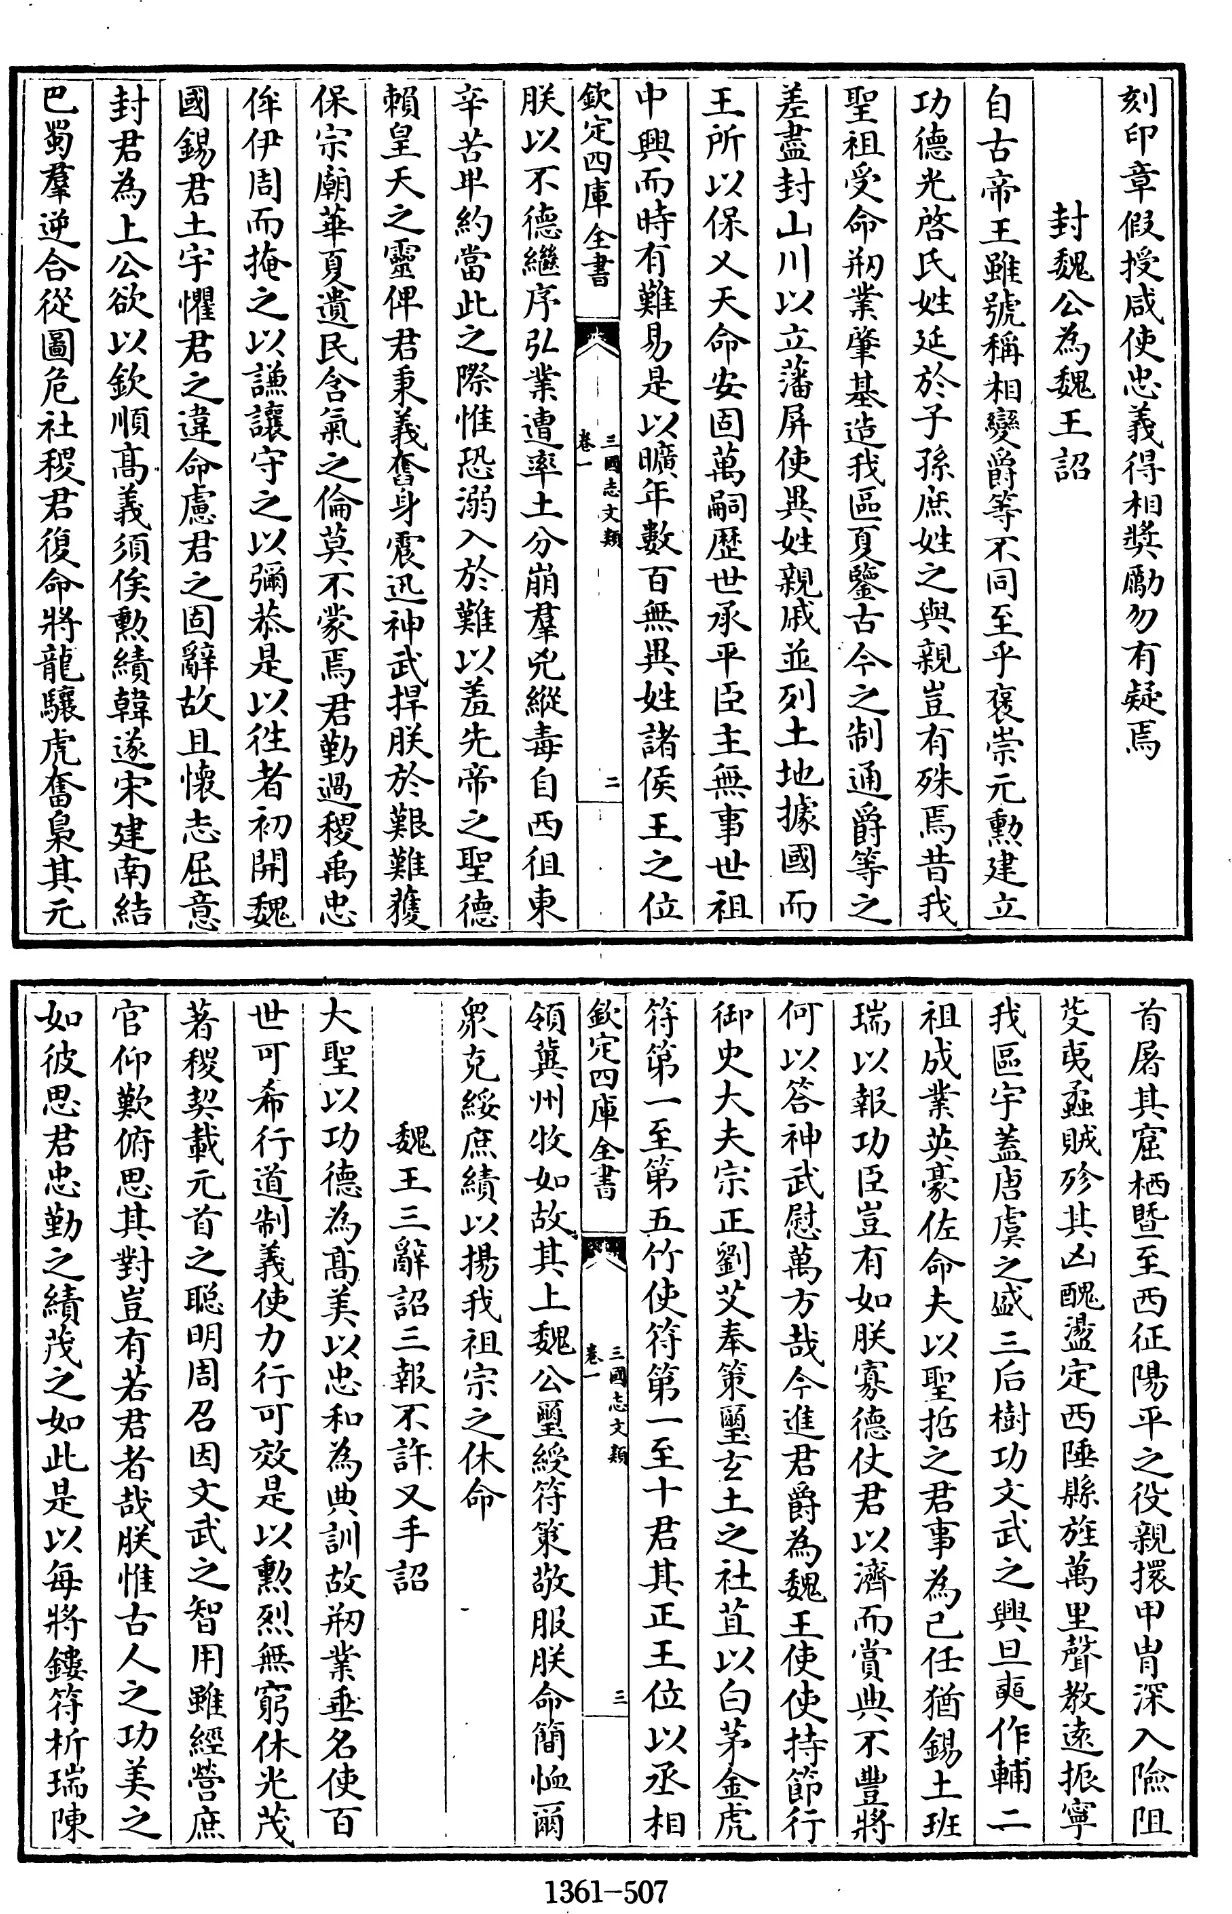 刻印章假授咸使忠義得相奬勵勿有疑焉
封魏公為魏王詔
自古帝王雖號稱相變爵等不同至乎褒崇元勳建立
功德光啓氏姓延於子孫庶姓之與親豈有殊焉昔我
聖祖受命剏業肇基造我區夏鑒古今之制通爵等之
差盡封山川以立藩屏使異姓親戚並列土地據國而
王所以保乂天命安固萬嗣歷世承平臣主無事世祖
中興而時有難易是以曠年數百無異姓諸侯王之位
欽定四庫全書
三國志文類
卷一
二
朕以不德繼序弘業遭率土分崩羣兇縱毒自西徂東
辛苦卑約當此之際惟恐溺入於難以羞先帝之聖德
賴皇天之靈俾君秉義奮身震迅神武捍朕於艱難獲
保宗廟華夏遺民含氣之倫莫不蒙焉君勤過稷禹忠
侔伊周而掩之以謙讓守之以彌恭是以徃者初開魏
國錫君土宇懼君之違命慮君之固辭故且懷志屈意
封君為上公欲以欽順高義須俟勲績韓遂宋建南結
巴蜀羣逆合從圖危社稷君復命將龍驤虎奮梟其元
首屠其窟栖暨至西征陽平之役親擐甲冑深入險阻
芟夷蝥賊殄其凶醜盪定西陲縣旌萬里聲教遠振寧
我區宇蓋唐虞之盛三后樹功文武之興旦奭作輔二
祖成業英豪佐命夫以聖哲之君事為己任猶錫土班
瑞以報功臣豈有如朕寡德仗君以濟而賞典不豐將
何以答神武慰萬方哉今進君爵為魏王使使持節行
御史大夫宗正劉艾奉策璽玄土之社苴以白茅金虎
符第一至第五竹使符第一至十君其正王位以丞相
欽定四庫全書
三國志文類
卷一
三
領冀州牧如故其上魏公璽綬符策敬服朕命簡恤爾
衆克綏庶績以揚我祖宗之休命
魏王三辭詔三報不許又手詔
大聖以功德為高美以忠和為典訓故剏業垂名使百
世可希行道制義使力行可效是以勲烈無窮休光茂
著稷契載元首之聰明周召因文武之智用雖經營庶
官仰歎俯思其對豈有若君者哉朕惟古人之功美之
如彼思君忠勤之績茂之如此是以每將鏤符析瑞陳
1361-507